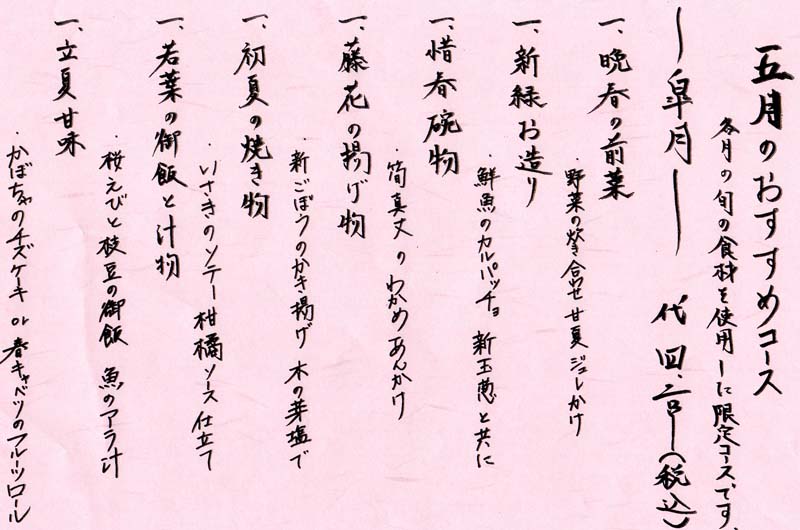 五月のおすすめコース
各月の旬の食材を使用した限定コースです。
〜皐月〜 代 四、二〇〇(税込)
一、晩春の前菜
・野菜の炊き合せ 甘夏ジュレかけ
一、新緑お造り
・鮮魚のカルパッチョ 新玉葱と共に
一、惜春碗物
・筍真丈のわかめあんかけ
一、藤花の揚げ物
・新ごぼうのかき揚げ 木の芽塩で
一、初夏の焼き物
・いさきのソテー 柑橘ソース仕立て
一、若葉の御飯と汁物
・桜えびと枝豆の御飯 魚のアラ汁
一、立夏甘味
・かぼちゃのチーズケーキ or 春キャベツのフルーツロール